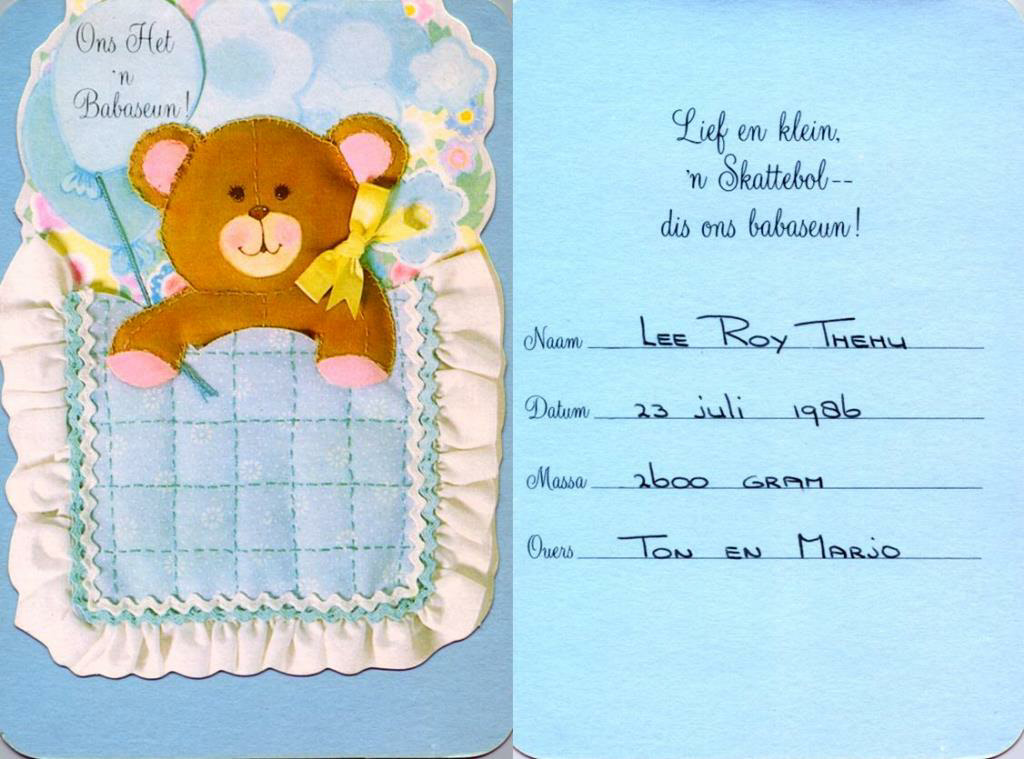 Ons Het
'n
Babaseun!
Lief en klein,
'n Skattebol--
dis ons babaseun!
Naam LEE ROY THEHU
Datum 23 juli 1986
Massa 2600 GRAM
Ouers TON EN MARJO